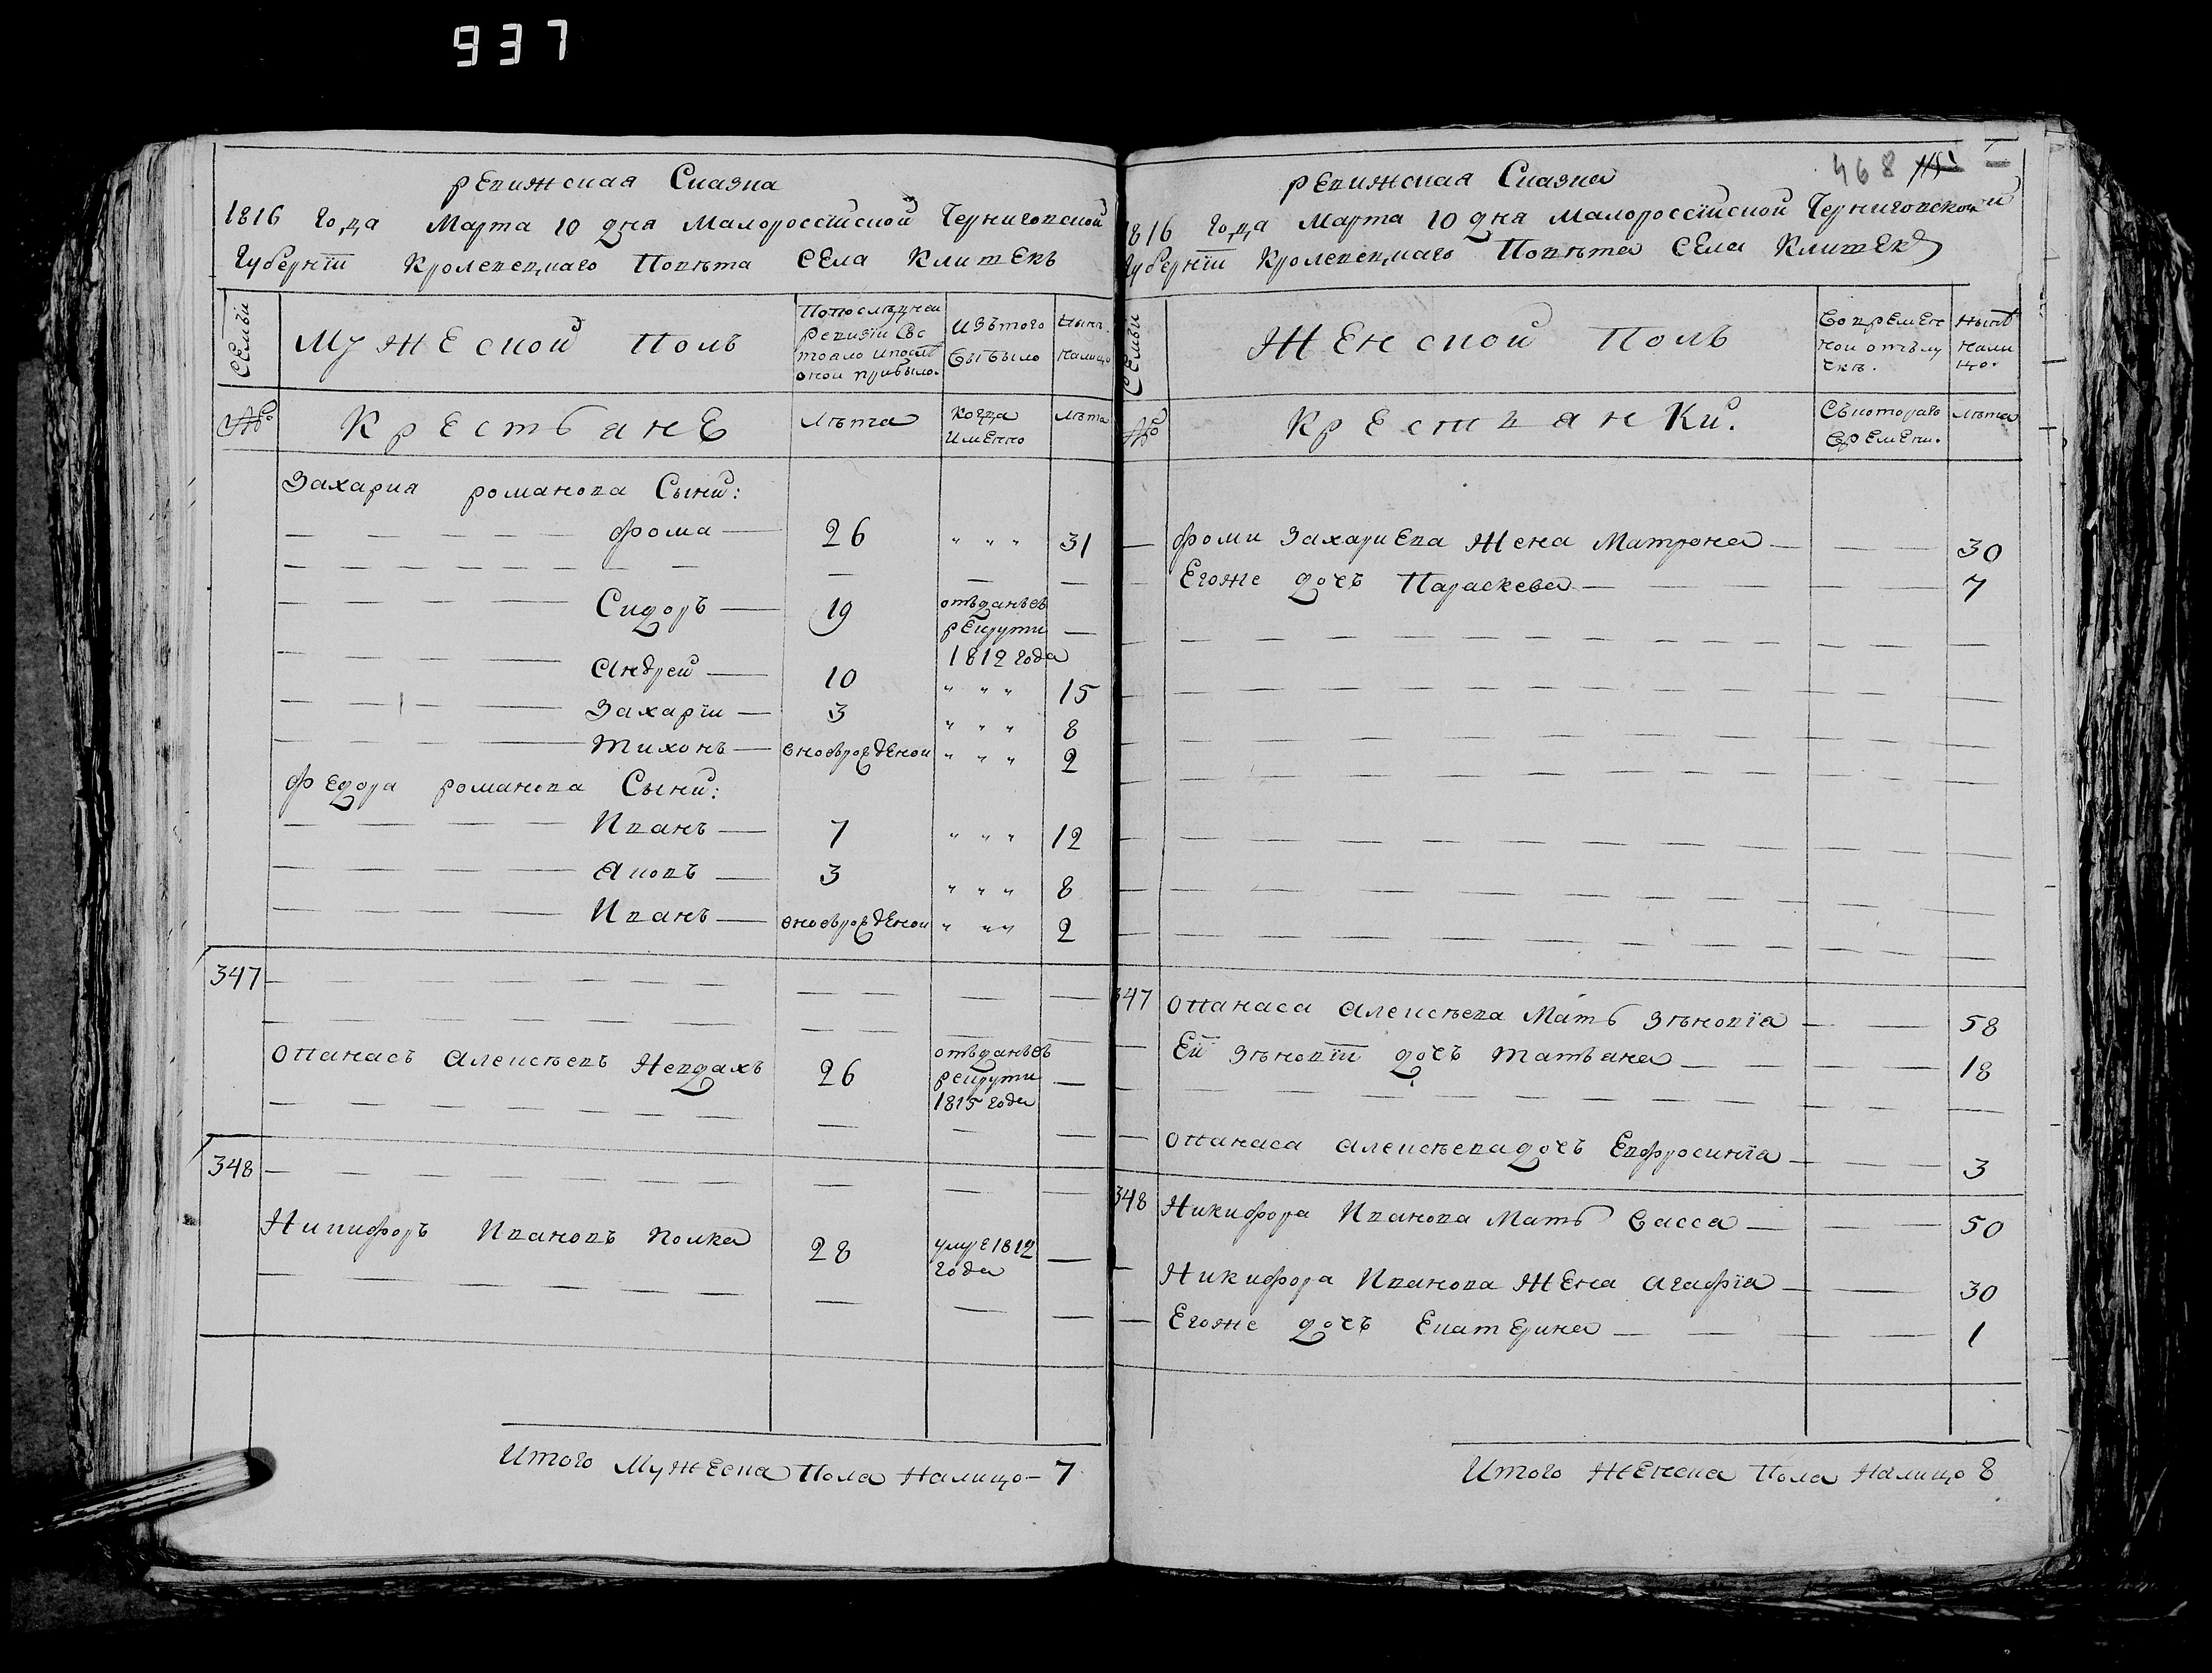 937
ревижская Сказка
1816 года Марта 10 дня Малороссійской Черниговской
Губерніи Кролевецкаго Повѣта Села Клишекъ
Семьи
Мужеской Полъ
По последней
ревизіи Сос
тояло и после
оной прибыло.
Изътого
Выбыло
Нынѣ
налицо
№
Крестьяне
Лѣта
Когда
Именно
Лѣта
Захария романова Сыни:
Фома 26 " " " 31
Сидоръ 19 отъданъвъ
рекрути
1812 года
Андрей 10 " " " 15
Захарій 3 " " " 8
Тихонъ вновьрожденой " " " 2
Федора романова Сыни:
Иванъ 7 " " " 12
Аковъ 3 " " " 8
Иванъ вновьрожденой " " " 2
347
Опанасъ Алексѣевъ Невдахъ 26 отъданъвъ
рекрути
1815 года
348
Никифоръ Ивановъ Комка 28 умре1812
года
Итого Мужеска Пола Налицо 7
468 115
ревижская Сказка
1816 года Марта 10 дня Малороссійской Черниговской
Губерніи Кролевецкаго Повѣта Села Клишекъ
Семьи
Женской Полъ
Во времен
ной отълу
чкѣ.
Нынѣ
нали
цо.
№
Крестьянки.
Съкотораго
Времени.
Лѣта
Фоми Захариева Жена Матрона 30
Егоже дочъ Параскева 7
347 Опанаса Алексѣева Мать Зѣновіа 58
Ей Зѣновіи дочъ Татъана 18
Опанаса Алексѣева дочъ Евфросиніа 3
348 Никифора Иванова Мать Васса 50
Никифора Иванова Жена Агафіа 30
Егоже дочъ Екатерина 1
Итого Женска Пола Налицо 8